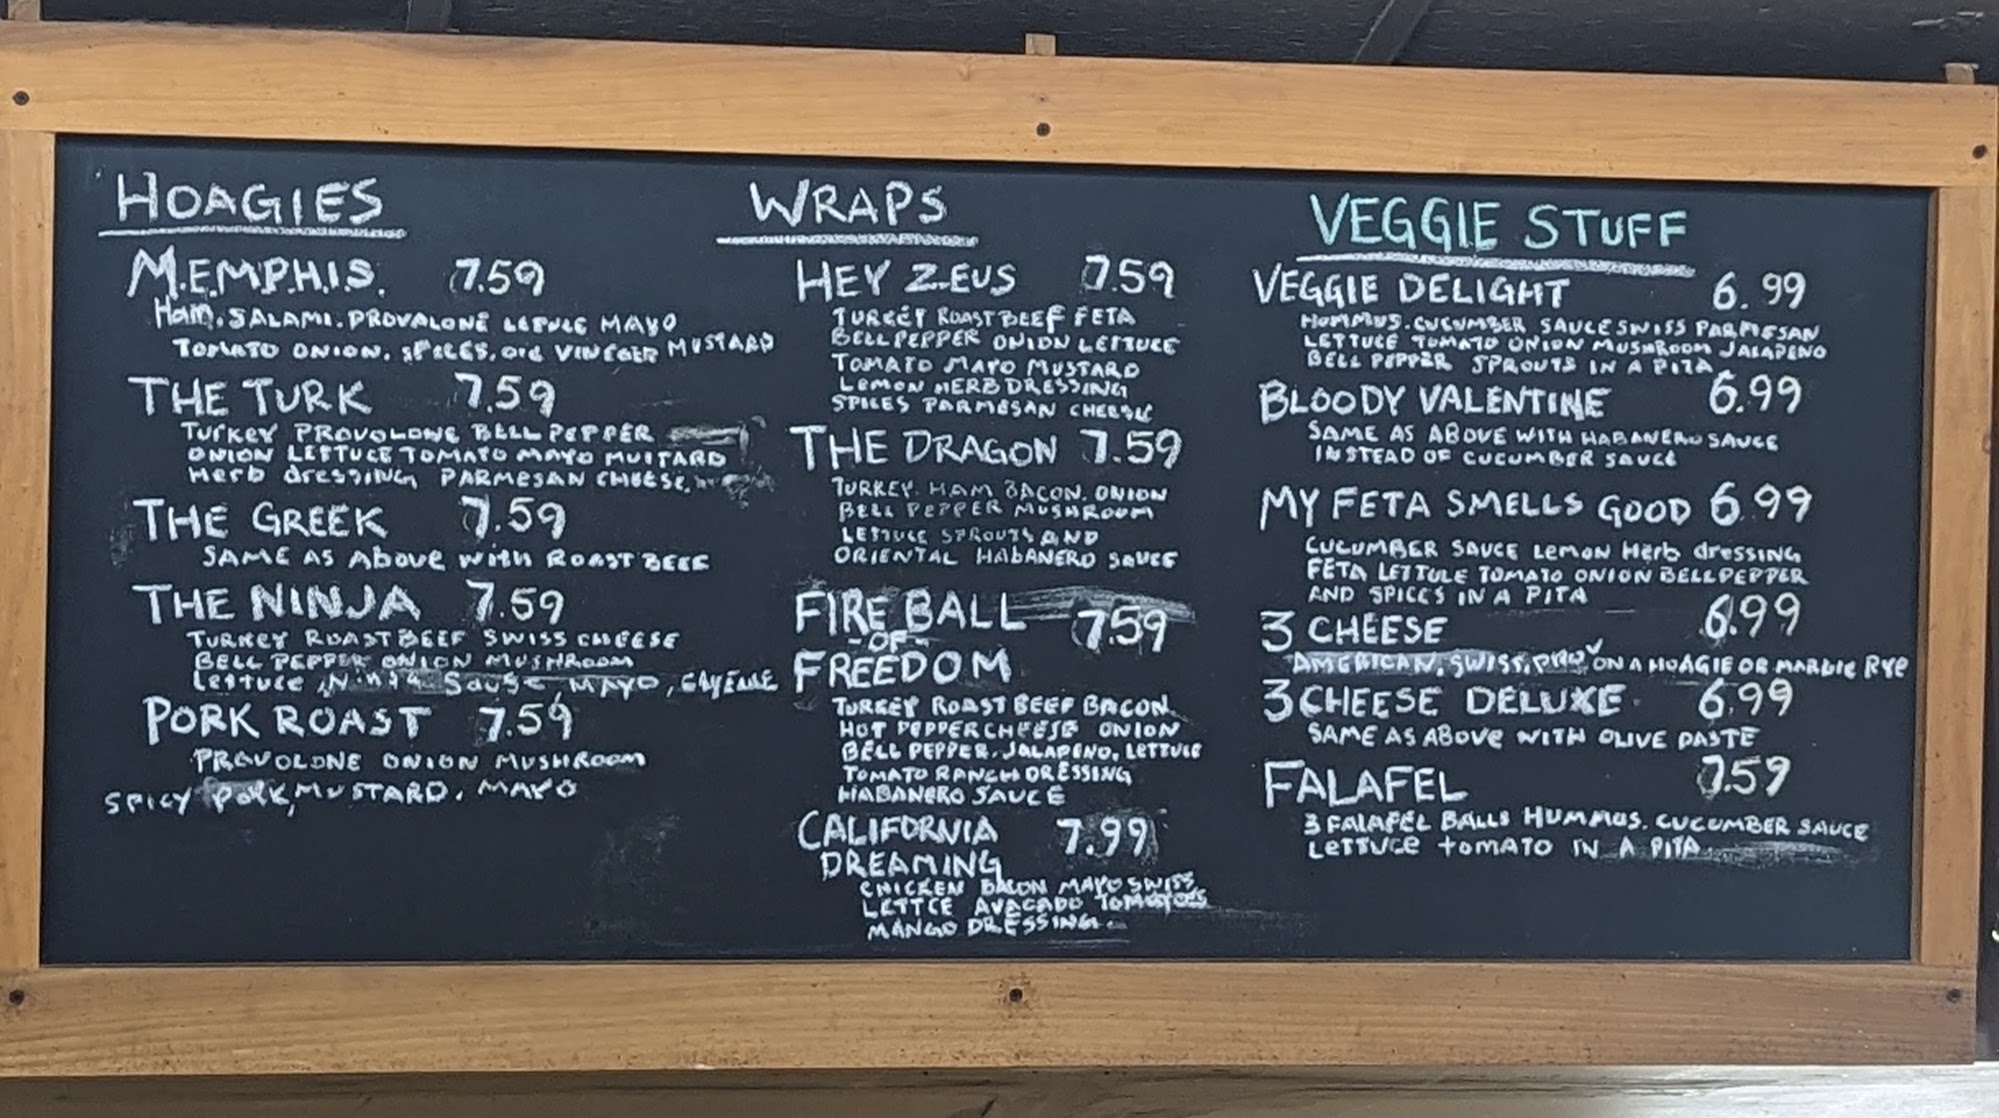 HOAGIES
M.E.M.P.H.I.S. 7.59
HAM. SALAMI. PROVALONE LETTUCE MAYO
TOMATO ONION. SPICES. OIL VINEGER MUSTARD
THE TURK 7.59
TURKEY PROVOLONE BELL PEPPER
ONION LETTUCE TOMATO MAYO MUSTARD
Herb dressING PARMESAN CHEESE.
THE GREEK 7.59
SAME AS ABOVE WITH ROAST BEEF
THE NINJA 7.59
TURKEY ROAST BEEF SWISS CHEESE
BELL PEPPER ONION MUSHROOM
LETTUCE NINJA SAUSE, MAYO, CAYENNE
PORK ROAST 7.59
PROVOLONE ONION MUSHROOM
SPICY PORK, MUSTARD, MAYO
WRAPS
HEY ZEUS 7.59
TURKEY ROAST BEEF FETA
BELL PEPPER ONION LETTUCE
TOMATO MAYO MUSTARD
LEMON HERB DRESSING
SPICES PARMESAN CHEESE
THE DRAGON 7.59
TURKEY. HAM BACON. ONION
BELL PEPPER MUSHROOM
LETTUCE SPROUTS AND
ORIENTAL HABANERO SAUCE
FIRE BALL 7.59
-OF-
FREEDOM
TURKEY ROAST BEEF BACON
HOT PEPPER CHEESE ONION
BELL PEPPER. JALAPENO. LETTUCE
TOMATO RANCH DRESSING
HABANERO SAUCE
CALIFORNIA 7.99
DREAMING
CHICKEN BACON MAYO SWISS
LETTCE AVACADO TOMATOES
MANGO DRESSING
VEGGIE STUFF
VEGGIE DELIGHT 6.99
HUMMUS. CUCUMBER SAUCE SWISS PARMESAN
LETTUCE TOMATO ONION MUSHROOM JALAPENO
BELL PEPPER SPROUTS IN A PITA
BLOODY VALENTINE 6.99
SAME AS ABOVE WITH HABANERO SAUCE
INSTEAD OF CUCUMBER SAUCE
MY FETA SMELLS GOOD 6.99
CUCUMBER SAUCE LEMON Herb dressING
FETA LETTUCE TOMATO ONION BELL PEPPER
AND SPICES IN A PITA
3 CHEESE 6.99
AMERICAN, SWISS, PROV ON A HOAGIE OR MARBLE RYE
3 CHEESE DELUXE 6.99
SAME AS ABOVE WITH OLIVE PASTE
FALAFEL 7.59
3 FALAFEL BALLS HUMMUS. CUCUMBER SAUCE
LETTUCE TOMATO IN A PITA